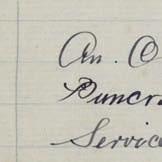 An. O
Puncr
Servic